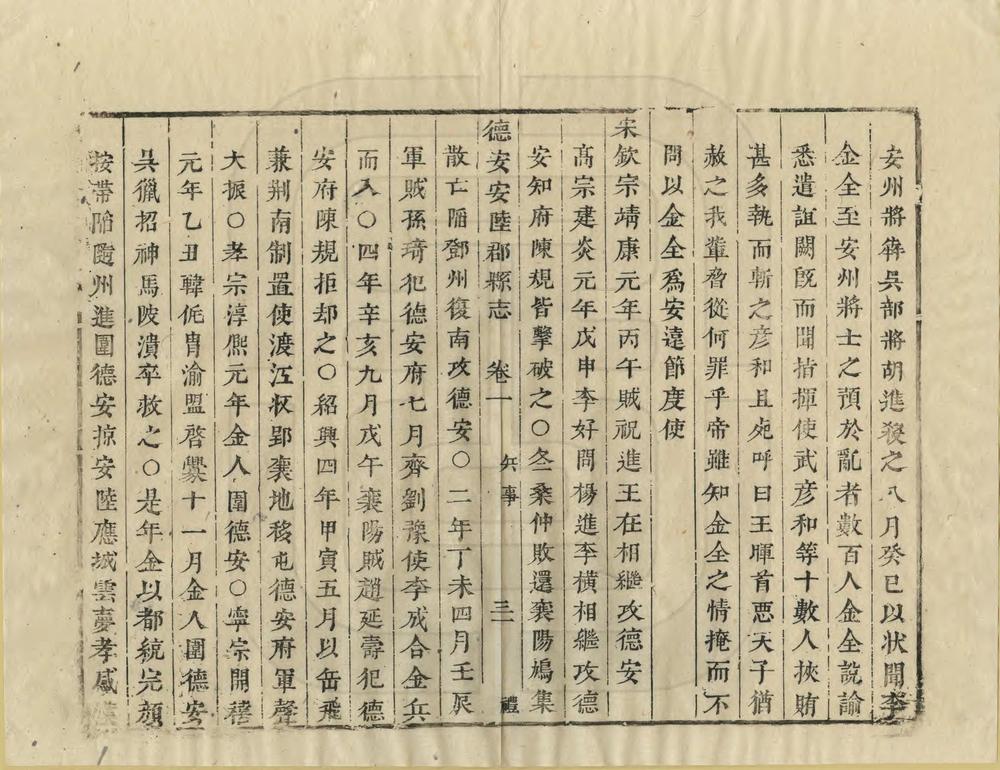 安州將犇吳部將胡進殺之八月癸巳以狀聞李
金全至安州將士之預於亂者數百人金全說諭
悉遣詣闕旣而聞指揮使武彦和等十數人挾賄
甚多執而斬之彦和且死呼曰王暉首惡天子猶
赦之我輩脅從何罪乎帝雖知金全之情掩而不
問以金全爲安遠節度使
宋欽宗靖康元年丙午賊祝進王在相繼攻德安
高宗建炎元年戊申李好問楊進李橫相繼攻德
安知府陳規皆擊破之○冬桑仲敗還襄陽鳩集
德安安陸郡縣志 卷一 兵事 三 禮
散亡陷鄧州復南攻德安○二年丁未四月壬辰
軍賊孫琦犯德安府七月齊劉豫使李成合金兵
而入○四年辛亥九月戊午襄陽賊趙延壽犯德
安府陳規拒却之○紹興四年甲寅五月以岳飛
兼荆南制置使渡江收郢襄地移屯德安府軍聲
大振○孝宗淳熈元年金人圍德安○寧宗開禧
元年乙丑韓侂胄渝盟啓釁十一月金人圍德安
吳獵招神馬陂潰卒救之○是年金以都統完顔
按帶陷隨州進圍德安掠安陸應城雲夢孝感